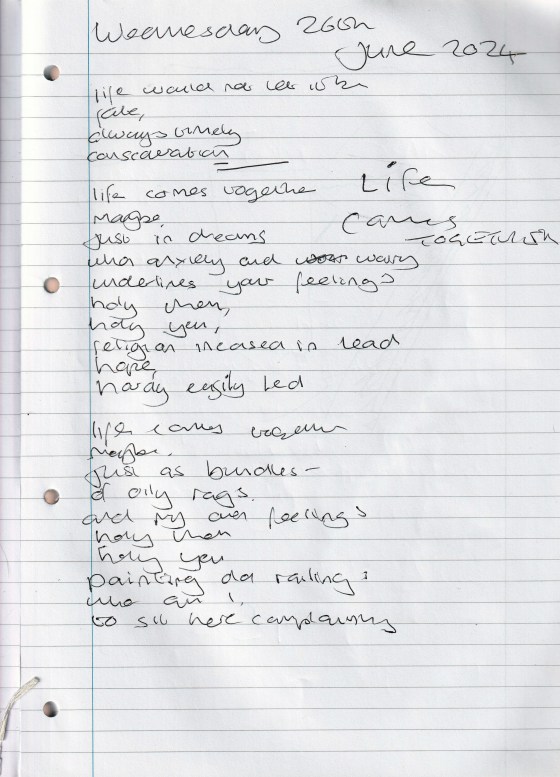 Wednesday 26th
June 2024
life would not let with
fate,
always timely
conservation
life comes together
Maybe,
just in dreams
Life
Comes
TOGETHER
what anxiety and worry
underlines your feelings
holy then,
holy yen,
religion incased in lead
hope,
hardy easily led
life comes together
Maybe.
just as bundles -
of oily rags.
and my own feelings
holy then
holy yen
painting old railings
who am I,
to sit here complaining